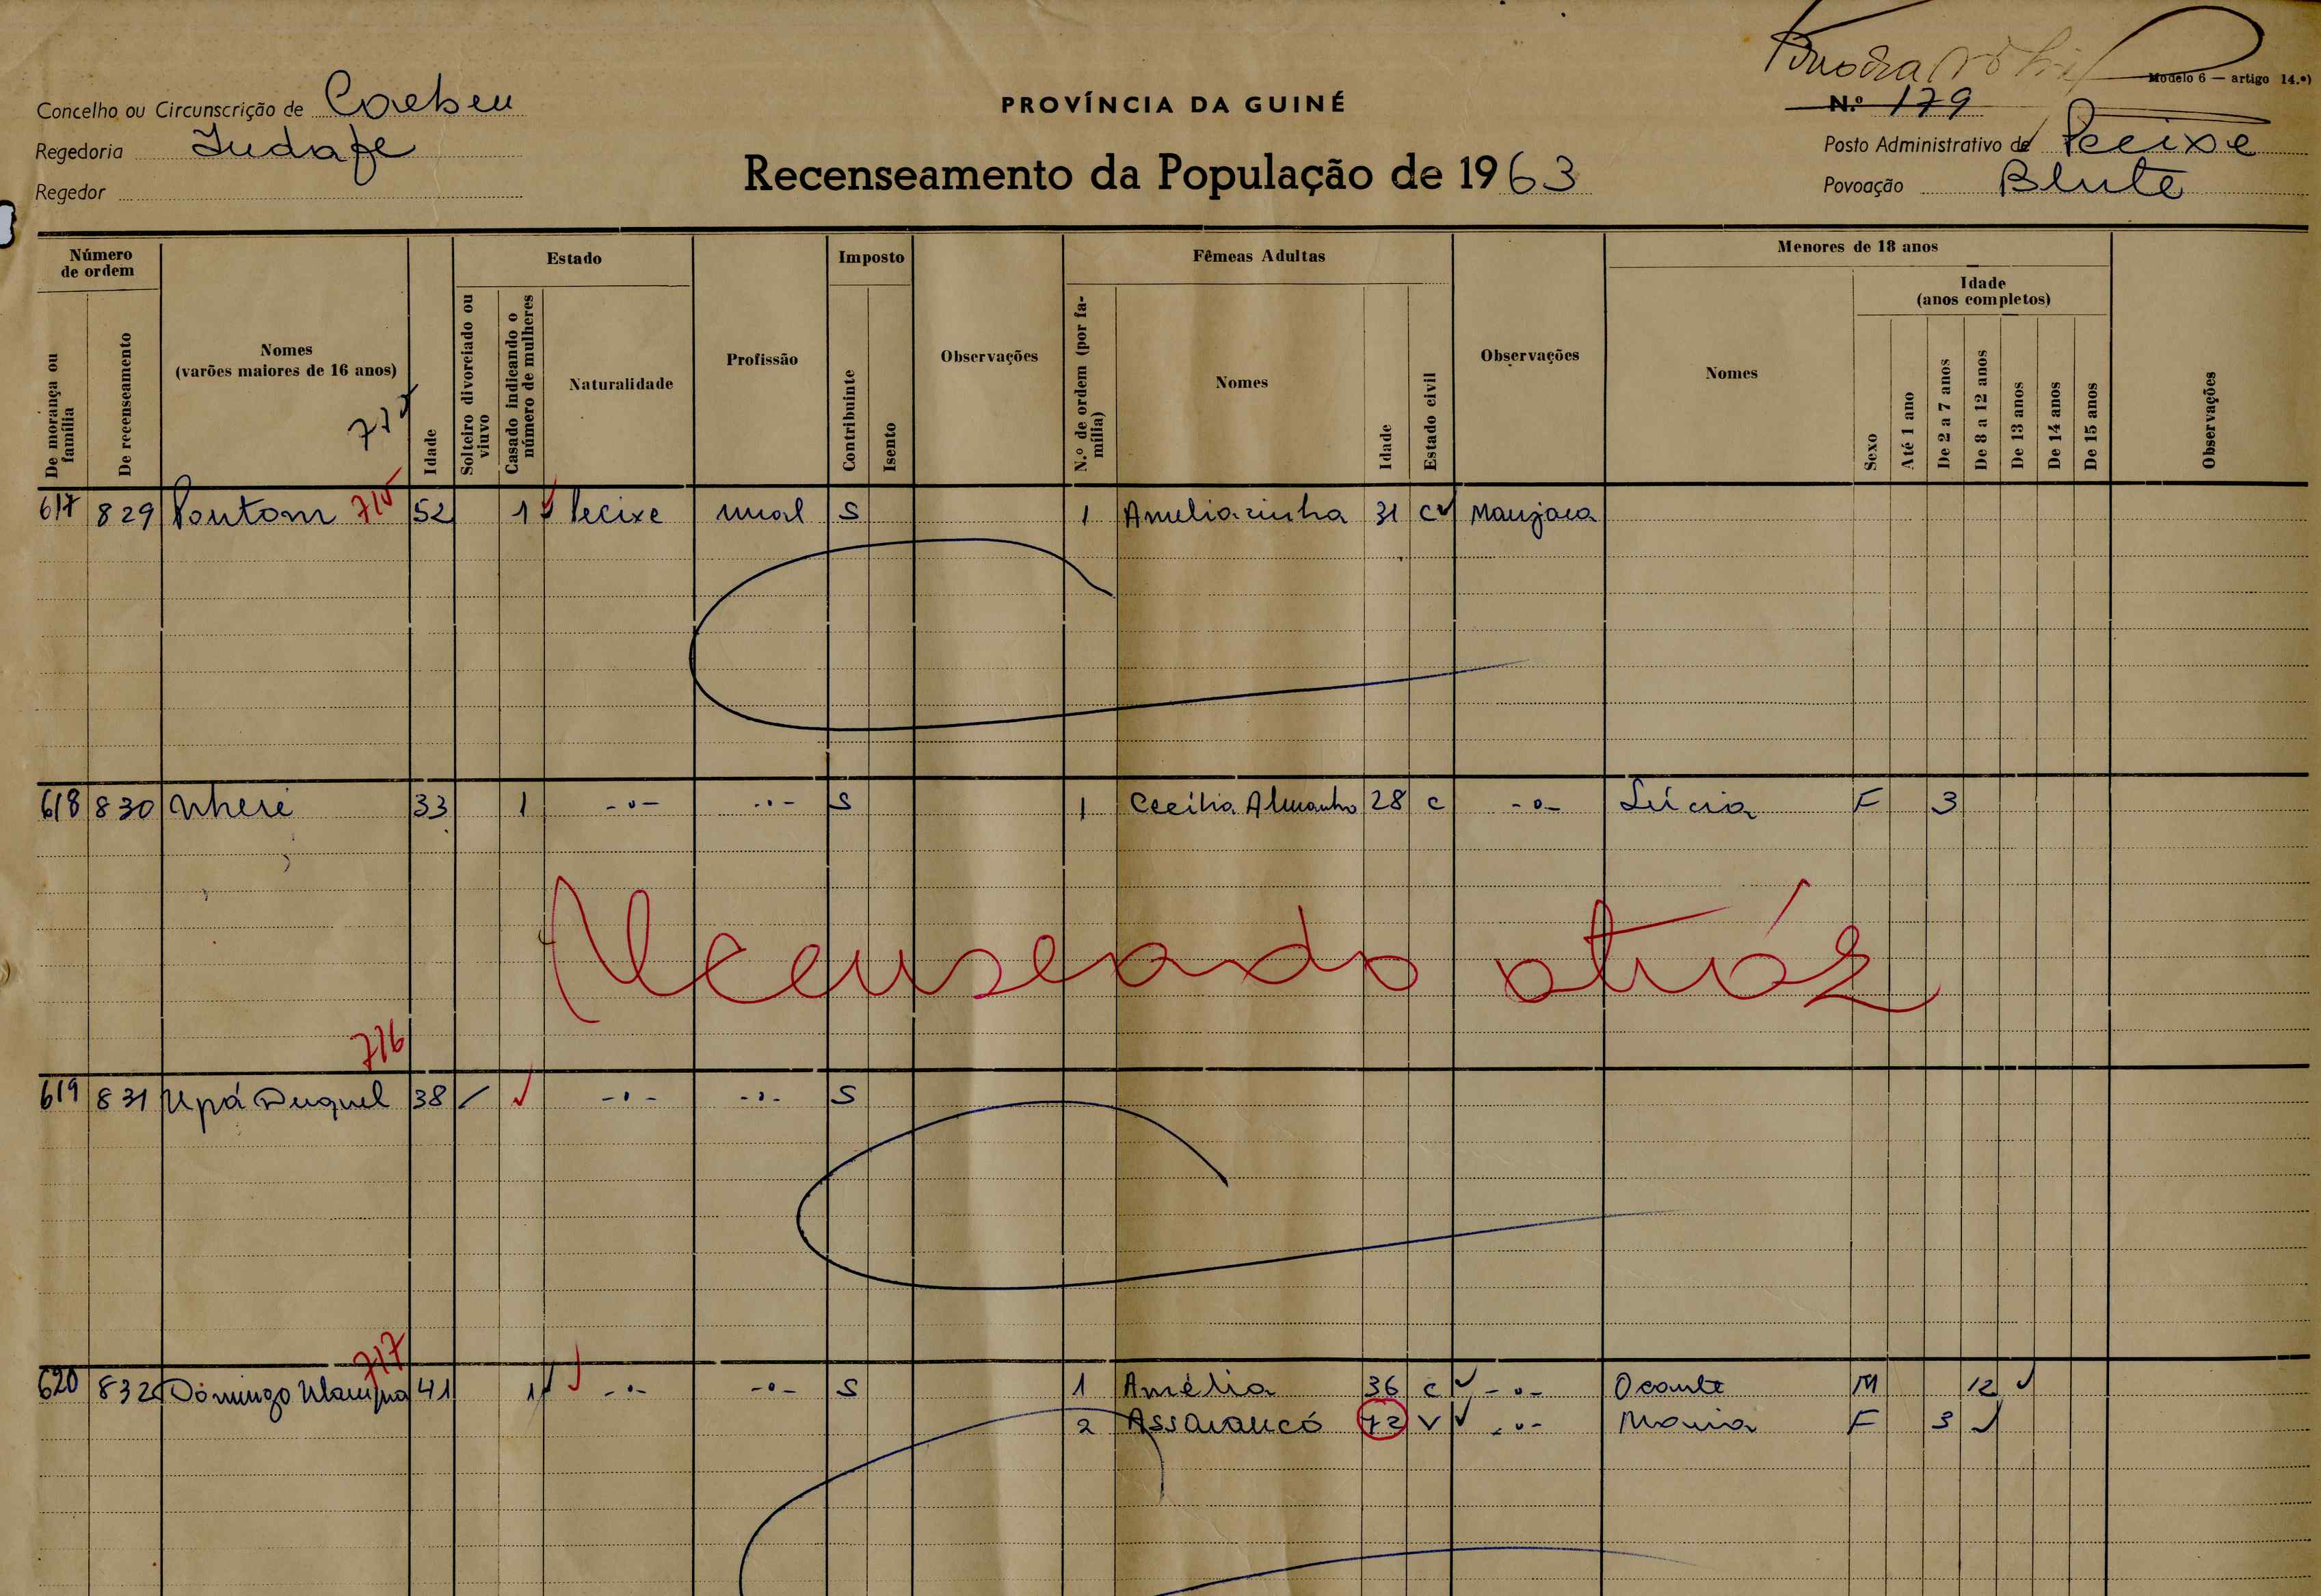 Modelo 6 — artigo 14.º)
Concelho ou Circunscrição de Caebeu
PROVÍNCIA DA GUINÉ
N.º 179
Regedoria Judafe
Posto Administrativo de Pecixe
Recenseamento da População de 1963
Regedor
Povoação Blute
Número de ordem
De morança ou família
De recenseamento
Nomes
(varões maiores de 16 anos)
Idade
Estado
Solteiro divorciado ou viuvo
Casado indicando o número de mulheres
Naturalidade
Profissão
Imposto
Contribuinte
Isento
Observações
Fêmeas Adultas
N.º de ordem (por família)
Nomes
Idade
Estado civil
Observações
Menores de 18 anos
Nomes
Sexo
Idade
(anos completos)
Até 1 ano
De 2 a 7 anos
De 8 a 12 anos
De 13 anos
De 14 anos
De 15 anos
Observações
715
617 829 Poutom 715 52 1 Pecixe rural S 1 Ameliazinha 31 C Manjaca
618 830 Nheré 33 1 -o- -o- S 1 Cecilia 28 C -o- Lúcia F 3
Recenseado atrás
716
619 831 Upá Duquel 38 -o- -o- S
717
620 832 Domingo 41 1 -o- -o- S 1 Amélia 36 C -o- Ocante M 12
2 Assarancó 72 V -o- Maria F 3